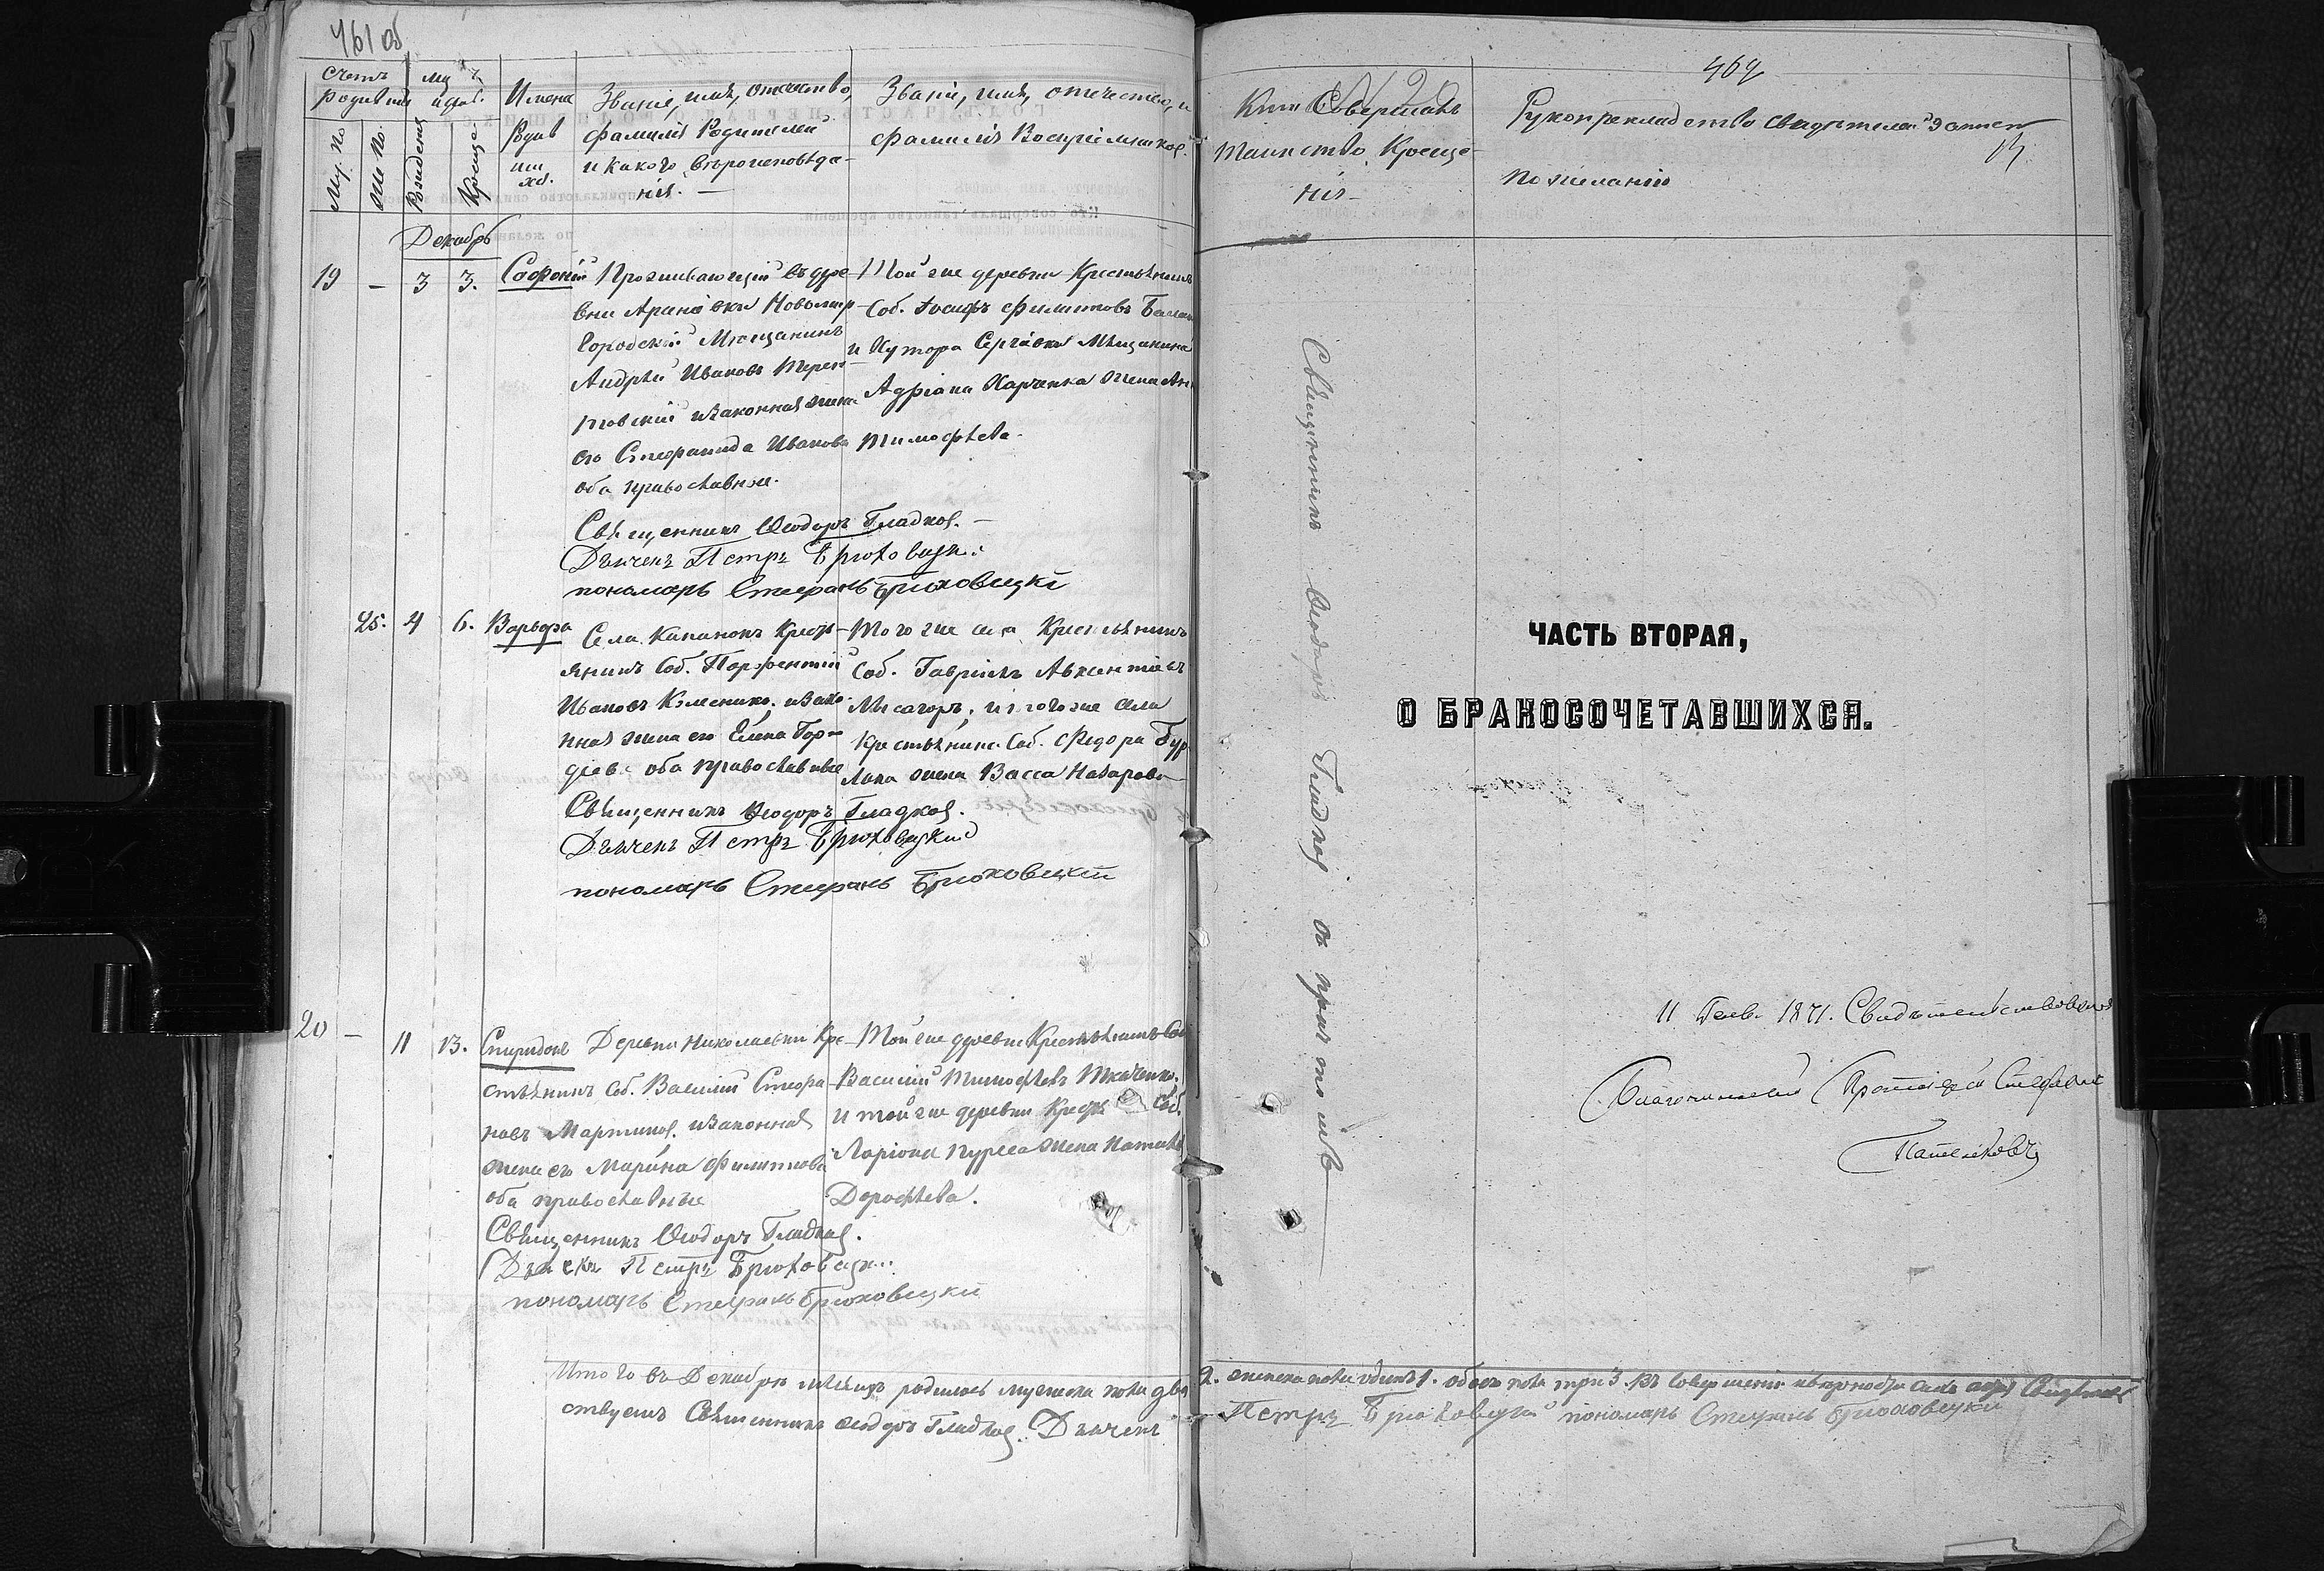 461 об
Счетъ родив
Имена родив
Званіе, имя, отчество, фамилія Родителей и какого вѣроисповѣда-
нія.
Званіе, имя, отчество, и фамилія Воспріемниковъ.
Му. по
Же. по
Рожденія
Креще
Декабрь
19 – 3 3. Софоній
Проживающій въ дере-
вни Ариновки Новомир
городскій Мѣщанинъ
Андрей Ивановъ Терен-
товскій и законная жена
его Стефанида Иванова
оба православные.
Той же деревни Крестьянинъ
Соб. Іосифъ Филиповъ
и Хутора Сергѣевки Мѣщанина
Адріана Харченка жена
Тимофѣева.
Священникъ Ѳеодоръ Гладкой.
Дьячекъ Петръ Брюховецкій
пономарь Стефанъ Брюховецкій
25. 4 6. Варвара
Села Капанокъ Крест-
янинъ Соб. Парфентій
Ивановъ Колесник. и зако-
нная жена его Елена Гор-
діева оба православные
Того же села Крестьянинъ
Соб. Гавріилъ Авксентіевъ
Лисагоръ, и того же села
Крестьянина Соб. Федора Бур
лака жена Васса Назарова
Священникъ Ѳеодоръ Гладкой.
Дьячекъ Петръ Брюховецкій
пономарь Стефанъ Брюховецкій
20 – 11 13. Спиридонъ
Деревни Николаевки Кре-
стьянинъ Соб. Василій Стефа-
новъ Мартинов. и законная
жена его Марина Филипова
оба православные
Той же деревни Крестьянинъ Соб
Василій Тимофѣевъ Ткаченко.
и той же деревни Крест Соб.
Ларіона Пурса жена
Дорофѣева.
Священникъ Ѳеодоръ Гладкой.
Дьячекъ Петръ Брюховецкій
пономарь Стефанъ Брюховецкій
Итого въ Декабрѣ мѣсяцѣ родилось мужеска пола два 2. женска пола одинъ 1. обоего пола три 3. Въ совершеніи и вѣрности сихъ актовъ Свидѣтель
ствуемъ Священникъ Ѳеодоръ Гладкой. Дьячекъ Петръ Брюховецкій пономарь Стефанъ Брюховецкій
462
Кто Совершалъ
таинство Креще-
нія
Рукоприкладство свидѣтелей записи
по желанію
Священникъ Ѳеодоръ Гладкой съ причтомъ
ЧАСТЬ ВТОРАЯ,
О БРАКОСОЧЕТАВШИХСЯ.
11 Генв. 1871. Свидѣтельствовалъ
Благочинный Протоіерей Стефанъ